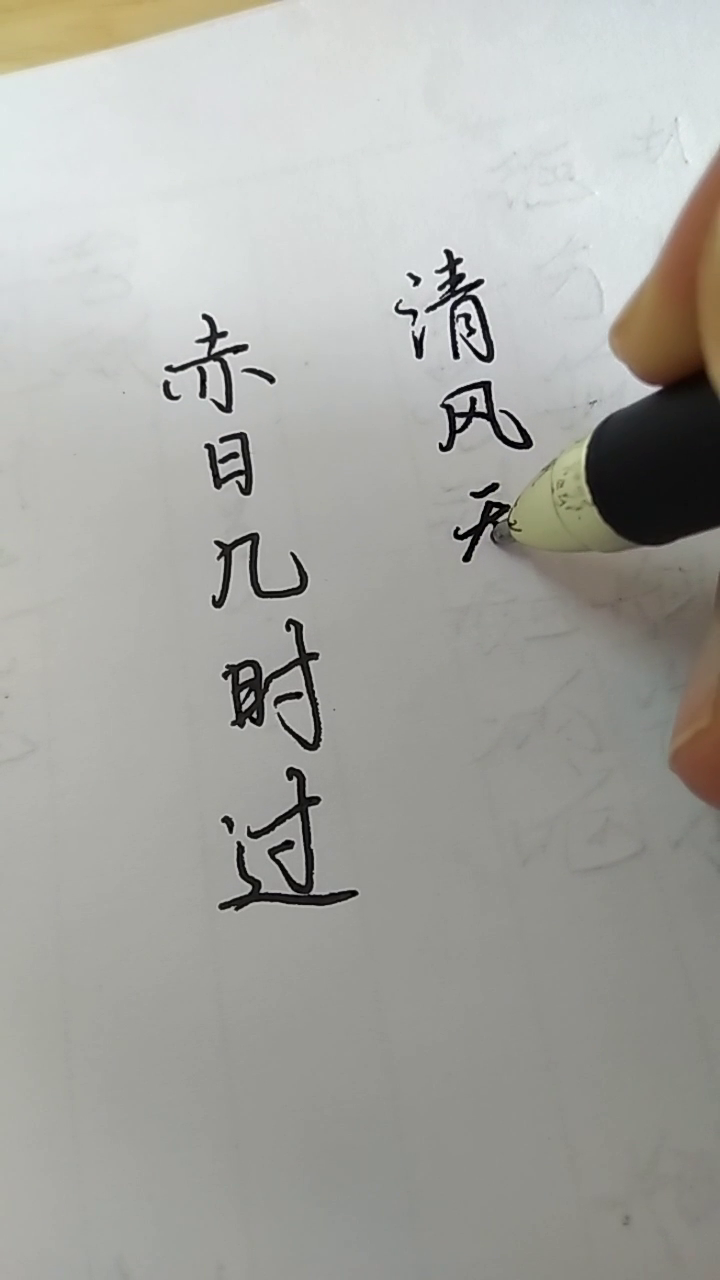 赤日几时过
清风无